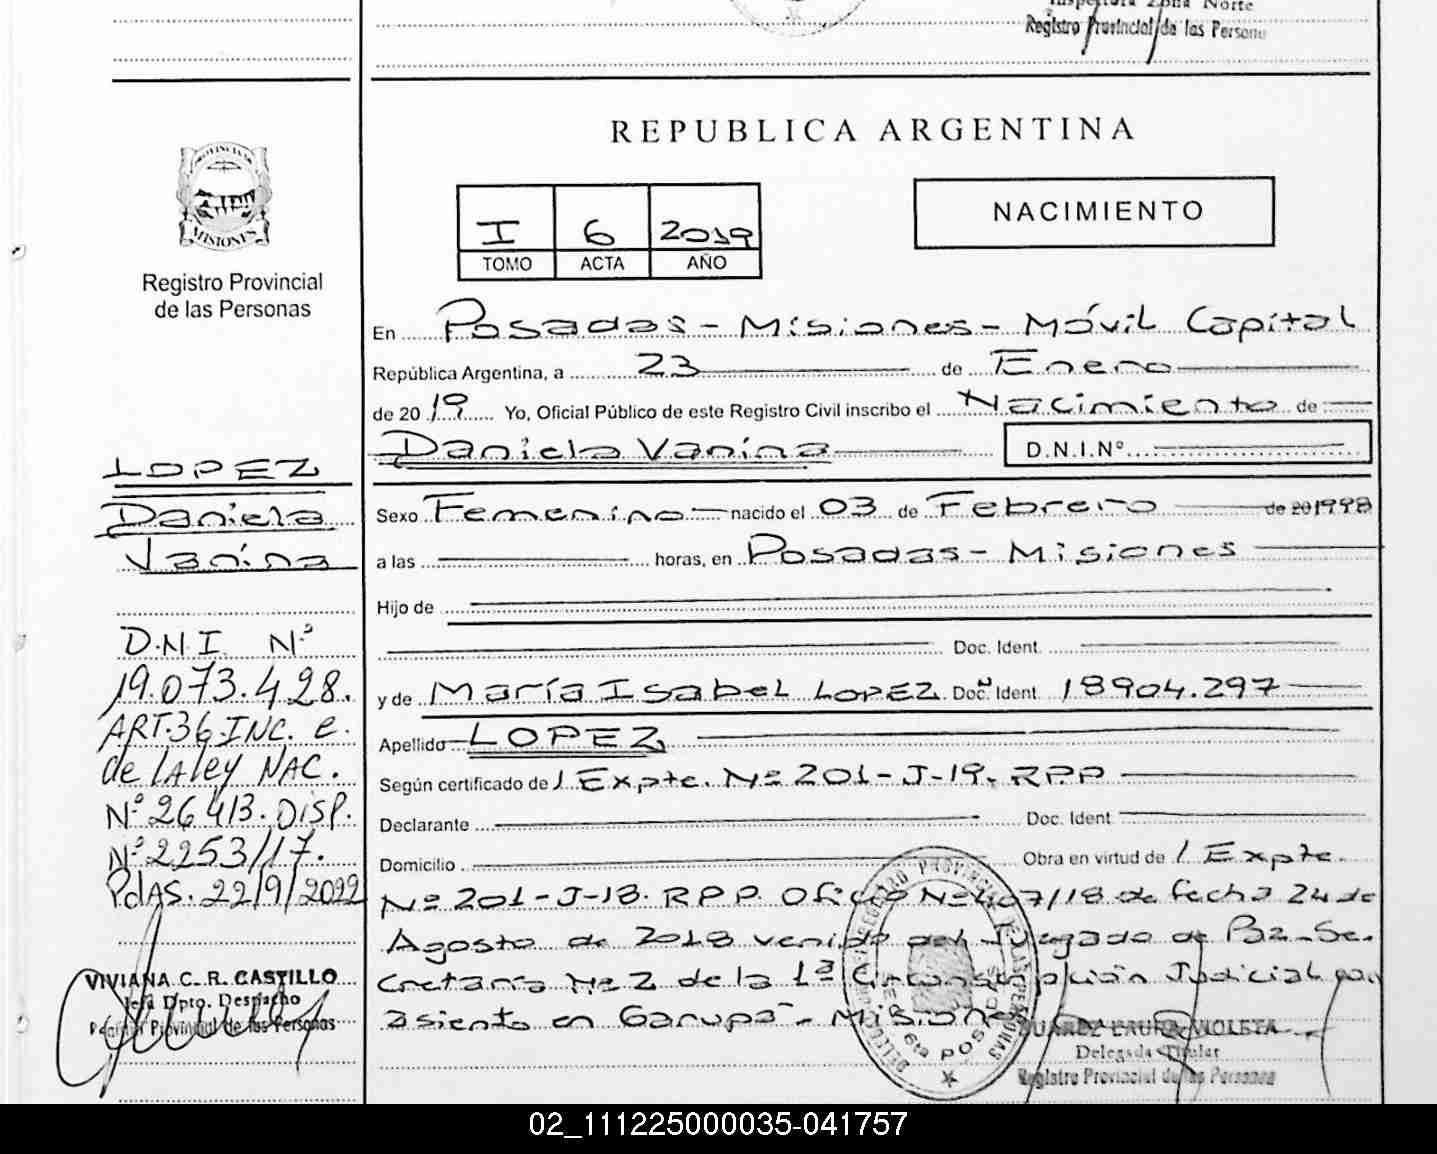 Inspectora Zona Norte
Registro Provincial de las Persona
PROVINCIA DE
MISIONES
Registro Provincial
de las Personas
REPUBLICA ARGENTINA
I 6 2019
TOMO ACTA AÑO
NACIMIENTO
En Posadas - Misiones - Móvil Capital
República Argentina, a 23 de Enero
de 2019 Yo, Oficial Público de este Registro Civil inscribo el Nacimiento de
Daniela Vanina D.N.I.Nº
Sexo Femenino nacido el 03 de Febrero de 20 1998
a las horas, en Posadas - Misiones
Hijo de
Doc. Ident.
y de María Isabel LOPEZ Doc. Ident. Nº 18904.297
Apellido LOPEZ
Según certificado de / Expte. Nº 201-J-19. RPP
Declarante Doc. Ident
Domicilio Obra en virtud de / Expte.
Nº 201-J-18. RPP. Oficio Nº 407/18 de fecha 24 de
Agosto de 2018 venido del Juzgado de Paz-Se-
cretaría Nº 2 de la 1ª Circunscripción Judicial con
asiento en Garupá - Misiones
LOPEZ
Daniela
Vanina
D.N.I. Nº
19.073.428.
ART.36.INC. e.
de LA ley NAC.
Nº 26413. DISP.
Nº 2253/17.
PdAS. 22/9/2022
VIVIANA C. R. CASTILLO
Jefa Dpto. Despacho
Registro Provincial de las Personas
POSADAS
SUAREZ LAURA VIOLETA
Delegada Titular
Registro Provincial de las Personas
02_111225000035-041757